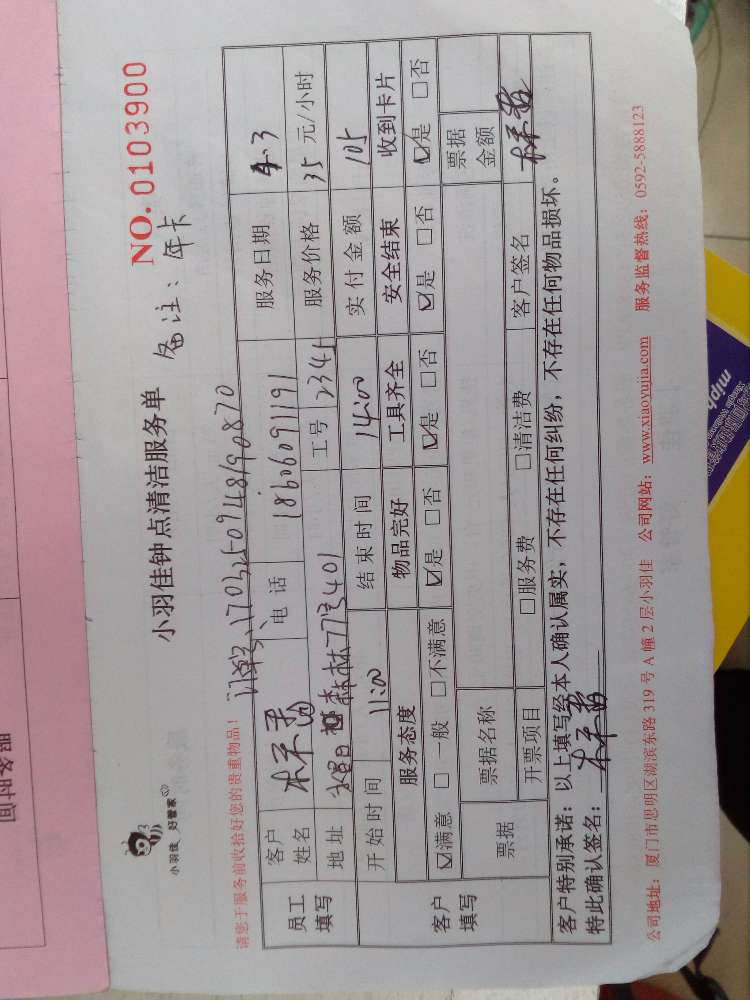 小羽佳 好管家
小羽佳钟点清洁服务单 备注：年卡 NO. 0103900
请您于服务前收拾好您的贵重物品！ 1703250948190870
员工填写 客户姓名 电话 18606091191 服务日期 4.3
地址 森林77号401 工号 2341 服务价格 35 元/小时
开始时间 11:00 结束时间 14:00 实付金额 105
客户填写 服务态度 物品完好 工具齐全 安全结束 收到卡片
☑满意 □一般 □不满意 ☑是 □否 ☑是 □否 ☑是 □否 ☑是 □否
票据 票据名称 票据金额
开票项目 □服务费 □清洁费 客户签名
客户特别承诺：以上填写经本人确认属实，不存在任何纠纷，不存在任何物品损坏。
特此确认签名：
公司地址：厦门市思明区湖滨东路 319 号 A 幢 2 层小羽佳 公司网站：www.xiaoyujia.com 服务监督热线：0592-5888123
服务时间
miph